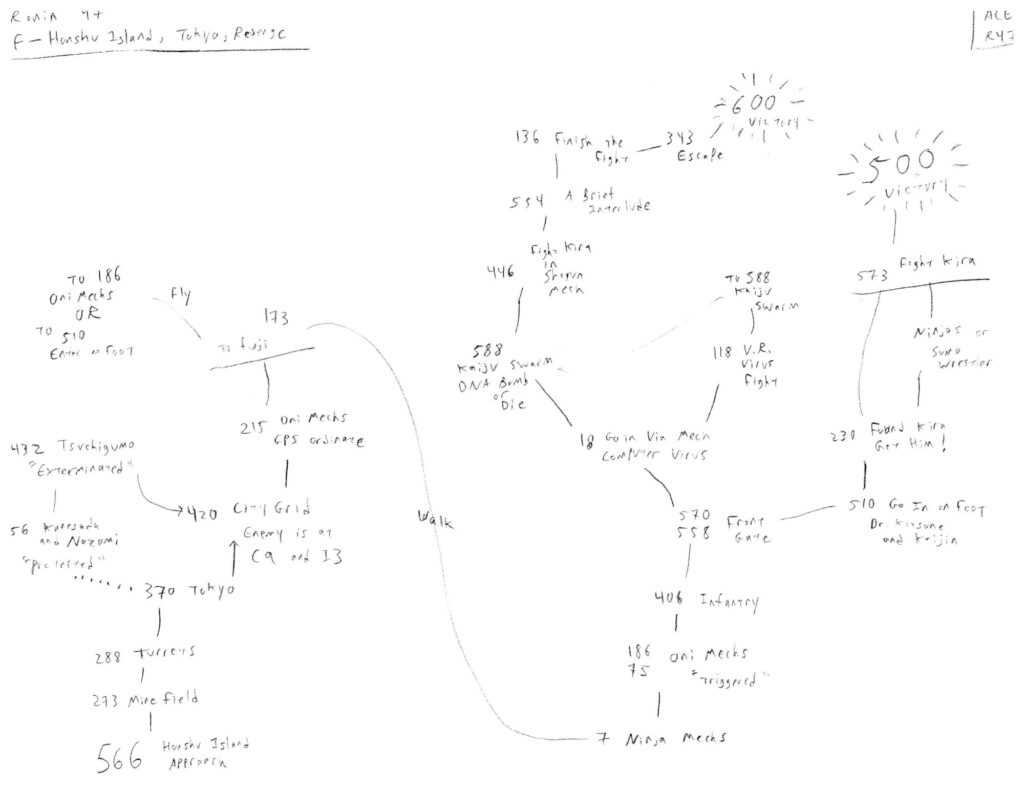 Ronin 47
F - Honshu Island, Tokyo, Revenge
ACE
R47
600
Victory
136 Finish the
Fight
343
Escape
500
Victory
554 A Brief
Interlude
Fight Kira
in
Shogun
Mech
446
573 Fight Kira
To 186
Oni Mechs
OR
To 510
Enter on Foot
Fly
173
To Fuji
To 588
Kaiju
Swarm
Ninjas or
Sumo
Wrestler
588
Kaiju Swarm
DNA Bomb
or
Die
118 V.R.
Virus
Fight
215 Oni Mechs
GPS ordinate
18 Go in Via Mech
Computer Virus
230 Found Kira
Get Him!
432 Tsuchigumo
"Exterminated"
420 City Grid
Enemy is at
C9 and I3
Walk
570
558 Front
Gate
510 Go In on Foot
Dr. Kitsune
and Keijin
56
and Nozomi
"protected"
370 Tokyo
406 Infantry
288 Turrets
186
75 Oni Mechs
"Triggered"
273 Mine Field
566 Honshu Island
Approach
7 Ninja Mechs